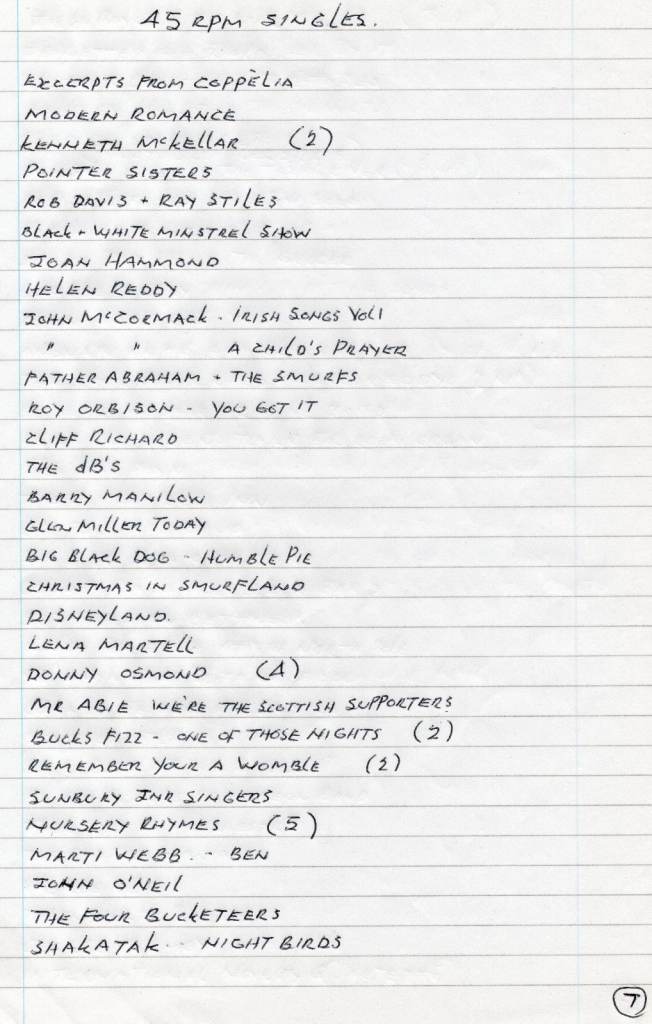 45 RPM SINGLES.
EXCERPTS FROM COPPÈLIA
MODERN ROMANCE
KENNETH McKELLAR (2)
POINTER SISTERS
ROB DAVIS + RAY STILES
BLACK + WHITE MINSTREL SHOW
JOAN HAMMOND
HELEN REDDY
JOHN McCORMACK - IRISH SONGS VOL 1
" " A CHILD'S PRAYER
FATHER ABRAHAM + THE SMURFS
ROY ORBISON - YOU GOT IT
CLIFF RICHARD
THE dB'S
BARRY MANILOW
GLEN MILLER TODAY
BIG BLACK DOG - HUMBLE PIE
CHRISTMAS IN SMURFLAND
DISNEYLAND.
LENA MARTELL
DONNY OSMOND (4)
MR ABIE WE'RE THE SCOTTISH SUPPORTERS
BUCKS FIZZ - ONE OF THOSE NIGHTS (2)
REMEMBER YOUR A WOMBLE (2)
SUNBURY JNR SINGERS
NURSERY RHYMES (5)
MARTI WEBB. - BEN
JOHN O'NEIL
THE FOUR BUCKETEERS
SHAKATAK - NIGHT BIRDS
7